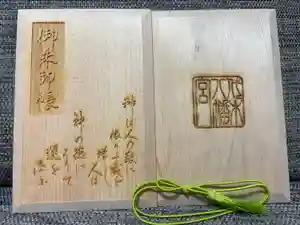 御朱印帳
神は人の敬に
依りて威を
増し人は
神の徳に
よりて
運を
添ふ
代々木
八幡
宮